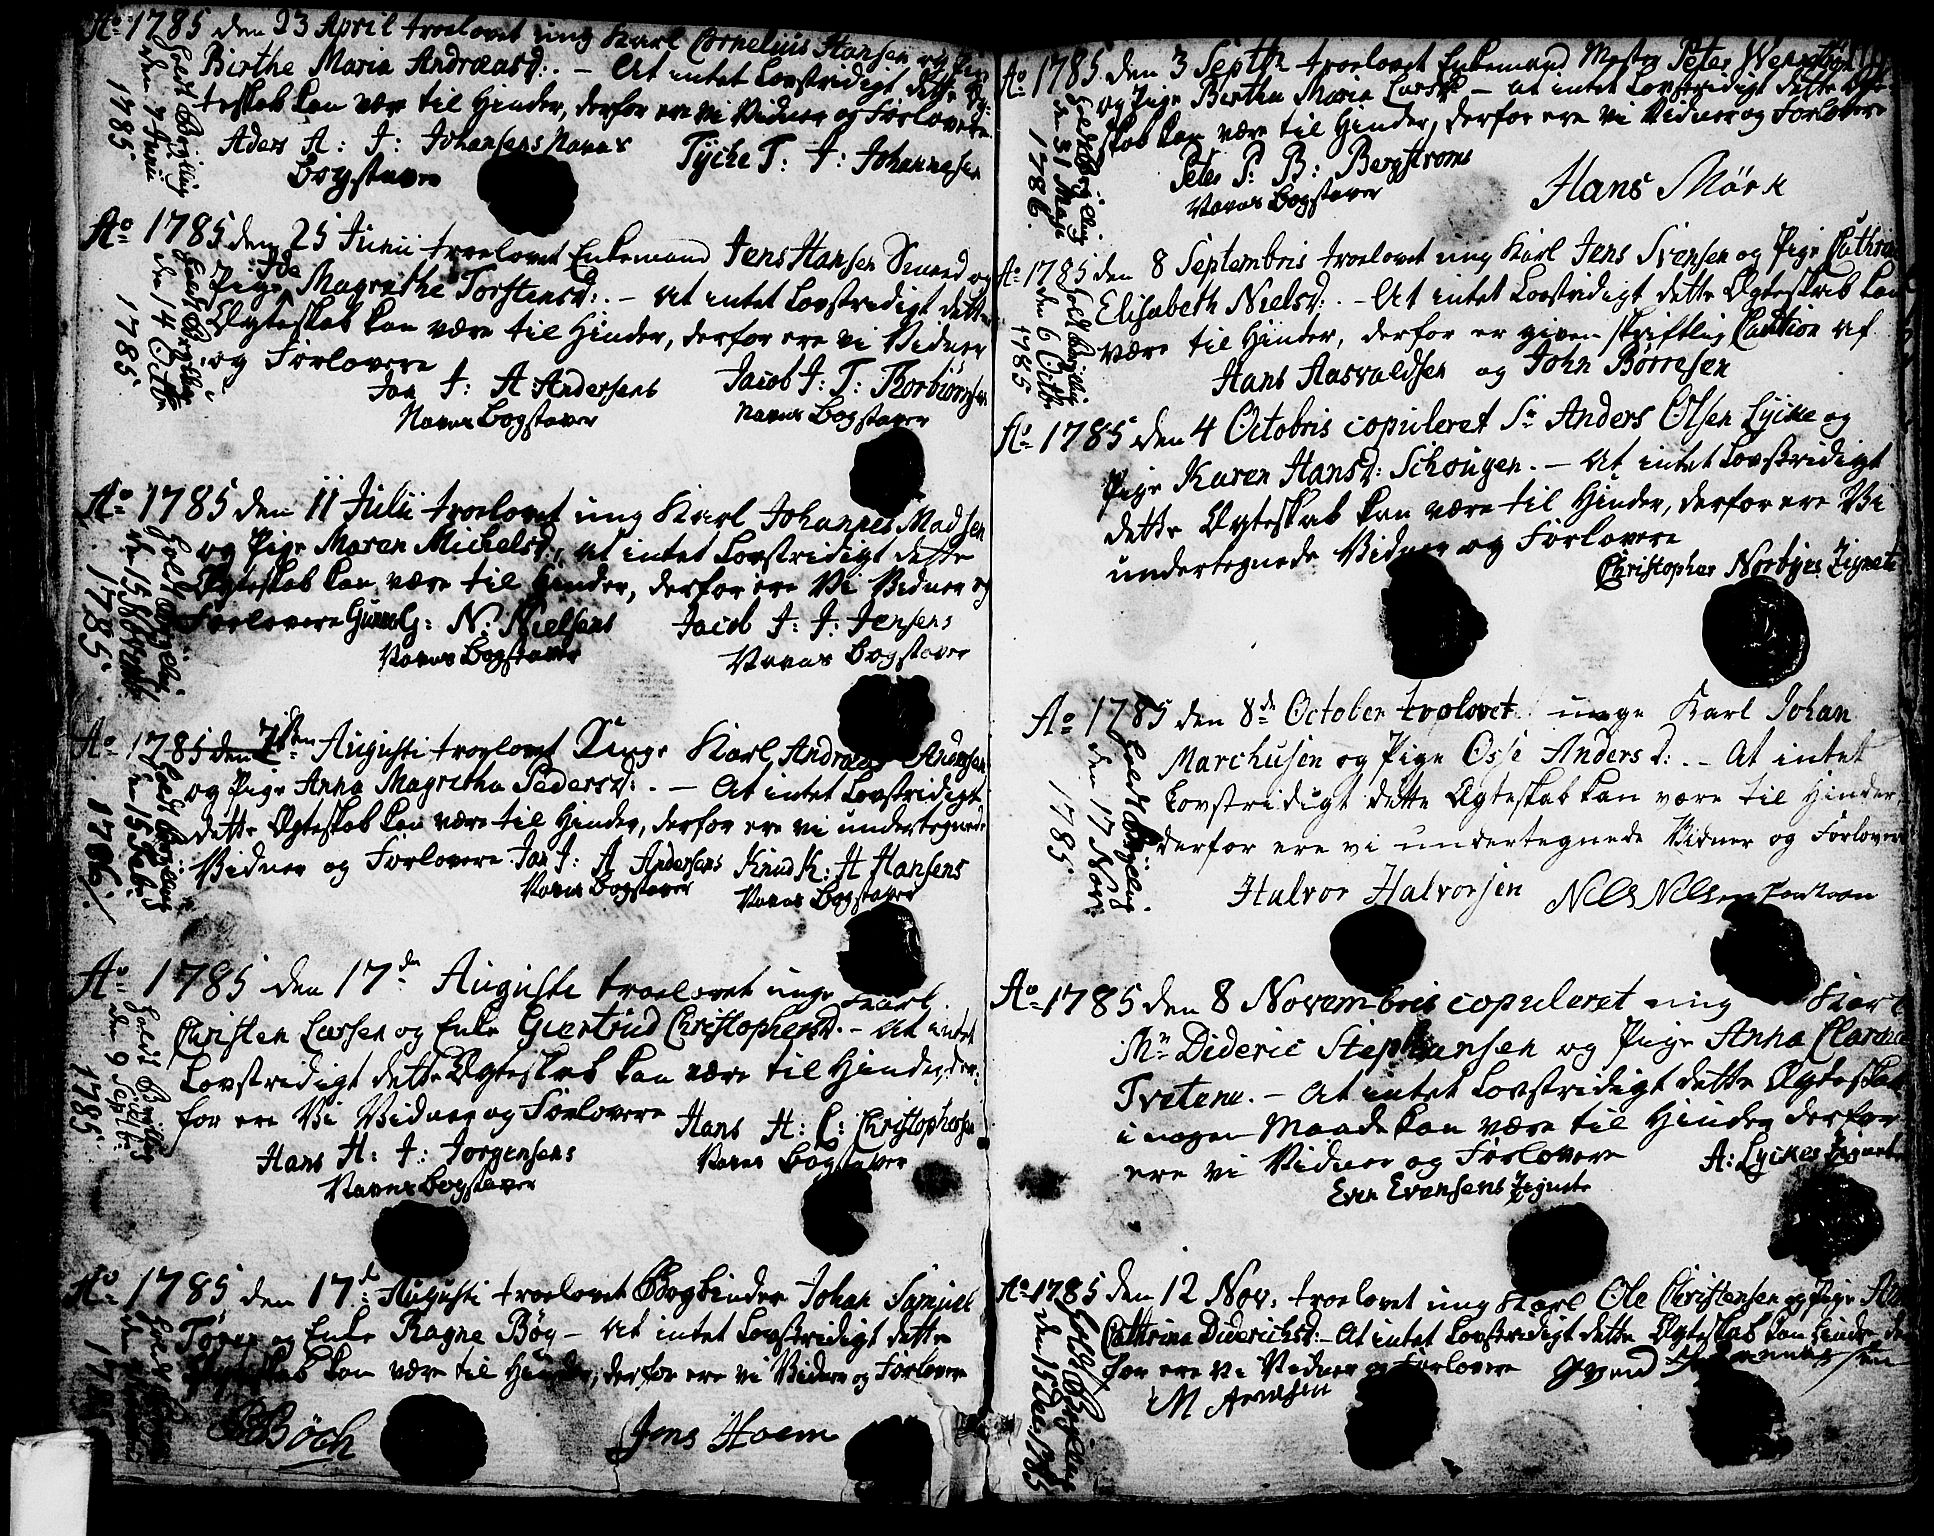 Ao 1785 den 23 April troelovet ung Karl Cornelius Hansen og Pige
Birthe Maria Andreasd:. — At intet Lovstridigt dette Æg-
teskab kan være til Hinder, derfor ere vi Vidner og Forlovere
Aders A: J: Johansens Navns Tÿche T: J: Johannesen
Bogstaver
holdt Brylluo
den 7 Junii
1785
Ao 1785 den 25 Junii troelovet Enkemand Jens Hansen Smed og
Pige Ide Magrethe Torstensd:. — At intet Lovstridigt dette
Ægteskab kan være til Hinder, derfor ere vi Vidner
og Forlovere
Jan J: A Andersens Jacob J: T: Thorbiörnsen
Navns Bogstaver Navns Bogstaver
den 14 Octbr
1785
Ao 1785 den 11 Julii troelovet ung Karl Johannes Madsen
og Pige Maren Michelsd:, At intet Lovstridigt dette
Ægteskab kan være til Hinder, derfor ere Vi Vidner og
Forlovere G: N: Nielsens Jacob J: J: Jensens
Navns Bogstaver Navns Bogstaver
1785
Ao 1785 den Augusti troelovet Unge Karl Andreas Andersen
og Pige Anna Magretha Pedersd:. — At intet Lovstridigt
dette Ægteskab kan være til Hinder, derfor ere vi undertegnede
Vidner og Forlovere Jan J: A Andersens Knud K: H Hansens
Navns Bogstaver Navns Bogstaver
den 15 Febr
1786
Ao 1785 den 17de Augusti troelovet unge Karl
Christen Larsen og Enke Giertrud Christophersd. — At intet
Lovstridigt dette Ægteskab kan være til Hinder, der-
for ere Vi Vidner og Forlovere Hans H: C: Christophersen
Hans H: J: Jorgensens Navns Bogstaver
Navns Bogstaver
den 9 Septbr:
1785
Ao 1785 den 17d: Augusti troelovet Bogbinder Johan Samuel
og Enke Ragne Böy — At intet Lovstridigt dette
Ægteskab kan være til Hinder, derfor ere vi Vidner og Forlovere
Böch Jens Hoem
Ao 1785 den 3 Septbr troelovet Enkemand Mester Peter
og Pige Birtha Maria Larsd — At intet Lovstridigt dette Ægte-
skab kan være til Hinder, derfor ere Vi Vidner og Forlovere
Peter P: B: Bergstroms Hans Mörk
Navns Bogstaver
den 31 Maji
1786.
Ao 1785 den 8 Septembris troelovet ung Karl Jens Svensen og Pige Cathrine
Elisabeth Nielsd:. — At intet Lovstridigt dette Ægteskab kan
være til Hinder, derfor er given skriftlig Caution af
Hans Aasvaldsen og John Börresen
den 6 Octbr
1785
Ao 1785 den 4 Octobris copuleret Sr Anders Olsen Lÿcke og
Pige Karen Hansd: Schougen. — At intet Lovstridigt
dette Ægteskab kan være til Hinder, derfor ere Vi
undertegnede Vidner og Forlovere
Christopher Norbyes Zignete
Ao 1785 den 8de October trolovet unge Karl Johan
Marchusen og Pige Osse Andersd:. — At intet
Lovstridigt dette Ægteskab kan være til Hinder
derfor ere vi undertegnede Vidner og Forlovere
Halvor Halvorsen Nils Nilsen
den 17 Nov:
1785
Ao 1785 den 8 Novembris copuleret ung Karl
Mr Dideric Stephansen og Pige Anna
Tvetene. — At intet Lovstridigt dette Ægteskab
i nogen Maade kan være til Hinder derfor
ere vi Vidner og Forlovere A: Lyckes Zignete
Even Evensens Zignete
Ao 1785 den 12 Nov: troelovet ung Karl Ole Christensen og Pige
Cathrina Diderichsd: — At intet Lovstridigt dette Ægteskab kan hindre der
for ere vi Vidner og Forlovere
M Arnesen
den 15 Dec: 1785